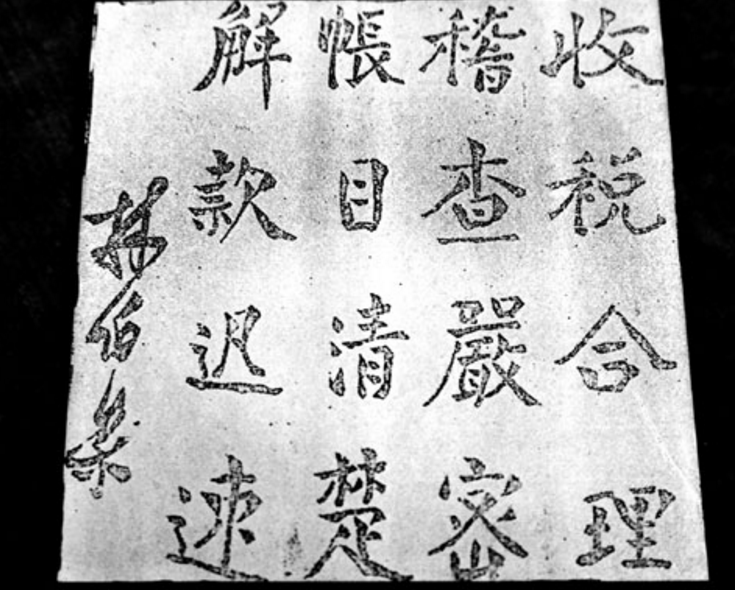 收税合理
稽查嚴密
帳目清楚
解款迅速
林伯渠